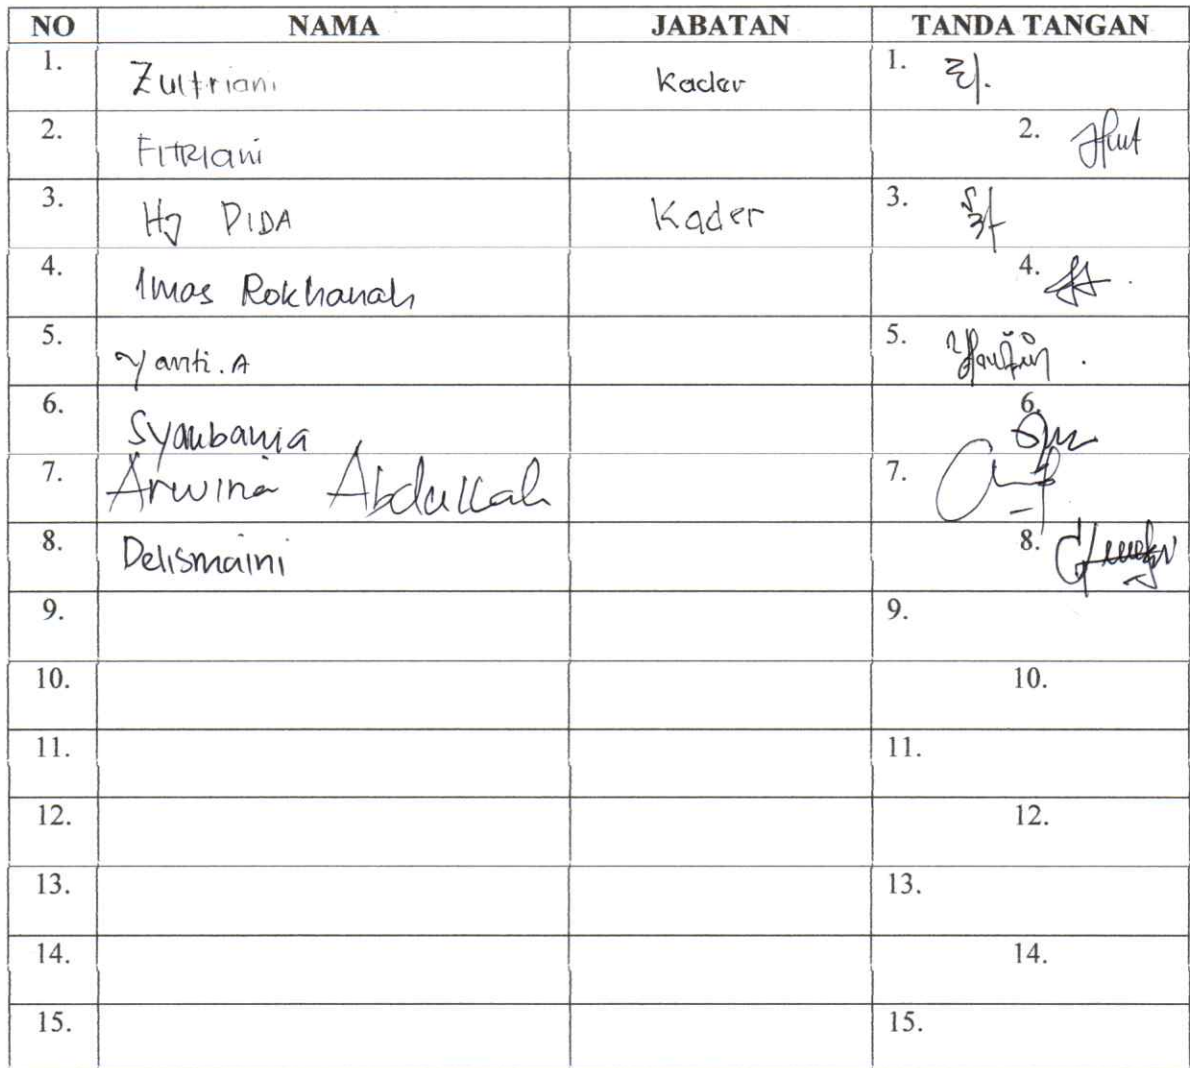 NO NAMA JABATAN TANDA TANGAN
1. Zultriani Kader 1.
2. FITRIani 2.
3. Hj DIDA Kader 3.
4. Imas Rokhanah 4.
5. Yanti. A 5.
6. Syaubania 6.
7. Arwina Abdullah 7.
8. Delismaini 8.
9. 9.
10. 10.
11. 11.
12. 12.
13. 13.
14. 14.
15. 15.